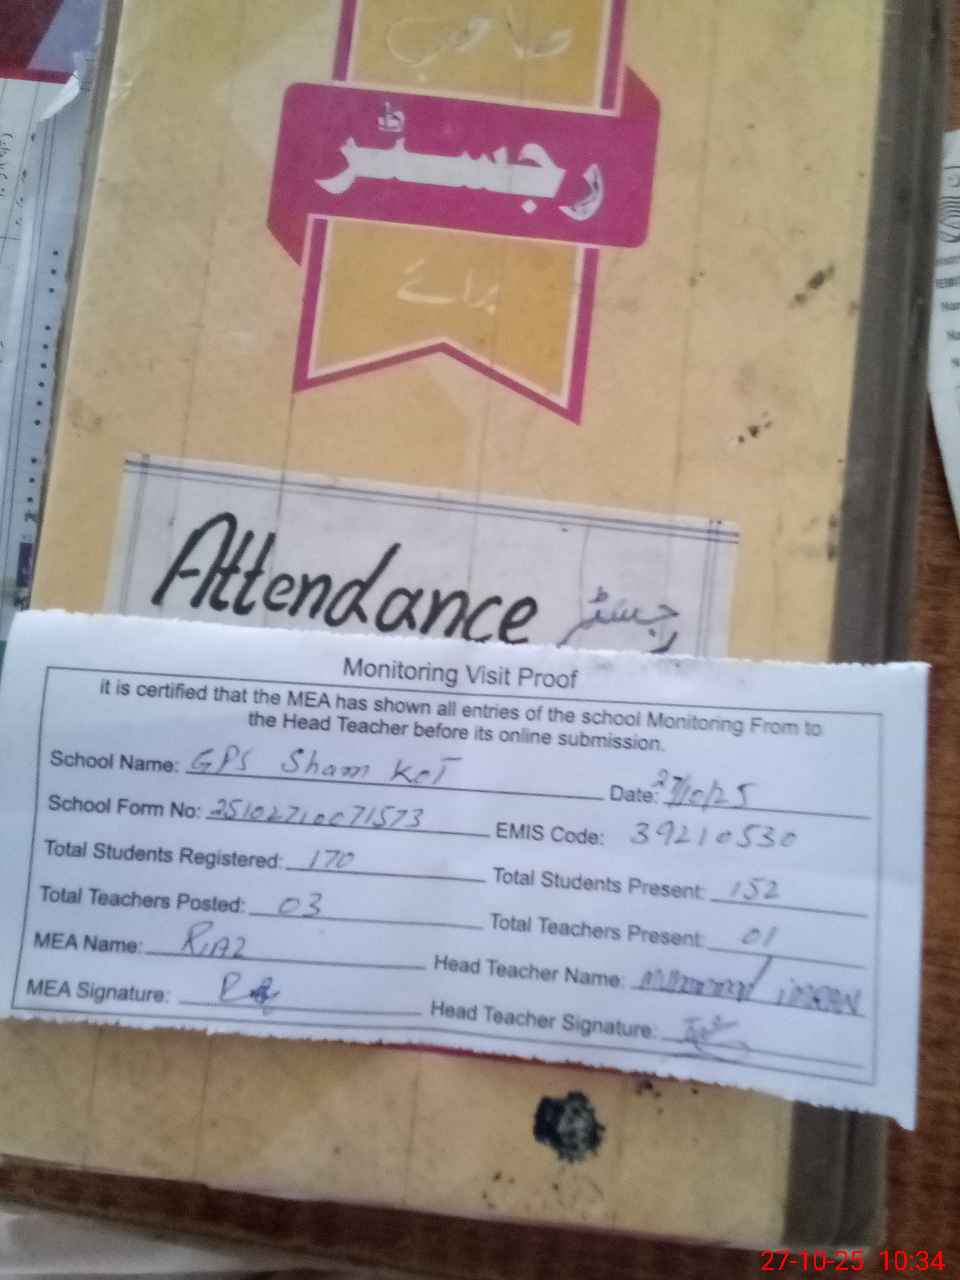 صاحب
رجسٹر
برائے
Attendance رجسٹر
Monitoring Visit Proof
it is certified that the MEA has shown all entries of the school Monitoring From to
the Head Teacher before its online submission.
School Name: GPS Sham Kot Date: 27/10/25
School Form No: 25102710071573 EMIS Code: 39210530
Total Students Registered: 170 Total Students Present: 152
Total Teachers Posted: 03 Total Teachers Present: 01
MEA Name: RIAZ Head Teacher Name: iMRAN
MEA Signature: Head Teacher Signature:
27-10-25 10:34